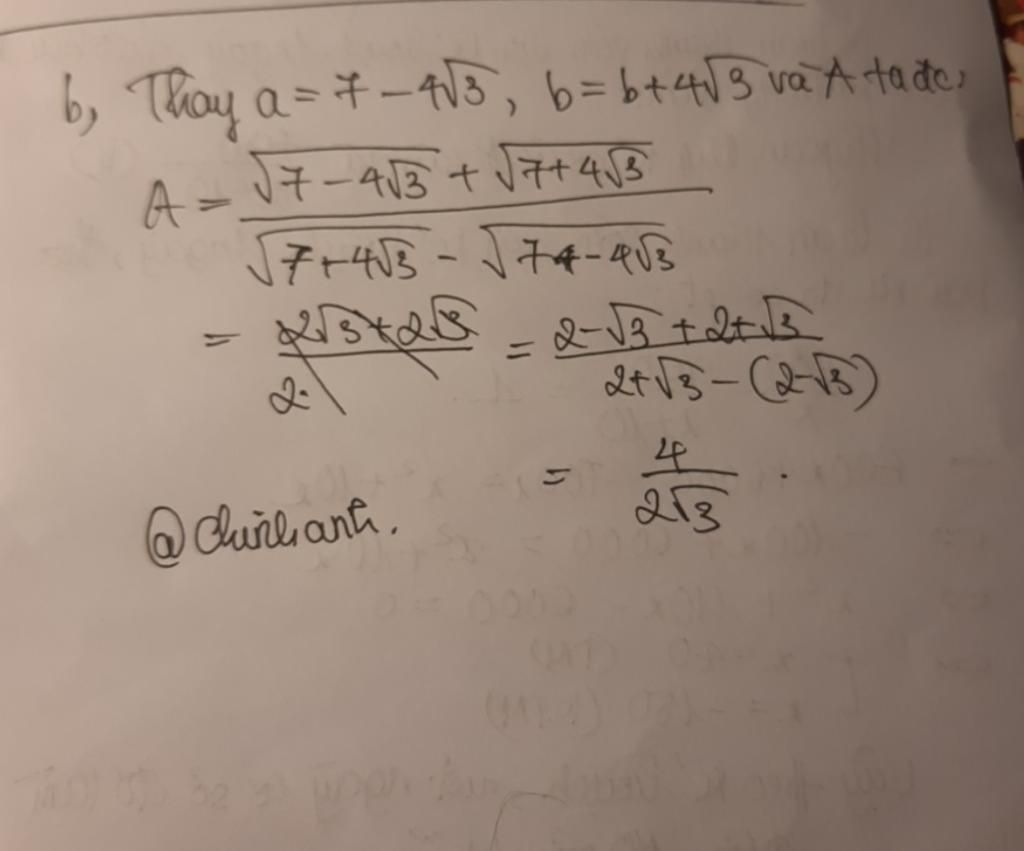 b, Thay a = 7 - 4√3, b = b + 4√3 và A ta đc,
A = (√(7 - 4√3) + √(7 + 4√3)) / (√(7 + 4√3) - √(7 - 4√3))
= (2√3 + 2√3) / 2 = (2 - √3 + 2 + √3) / (2 + √3 - (2 - √3))
= 4 / (2√3) .